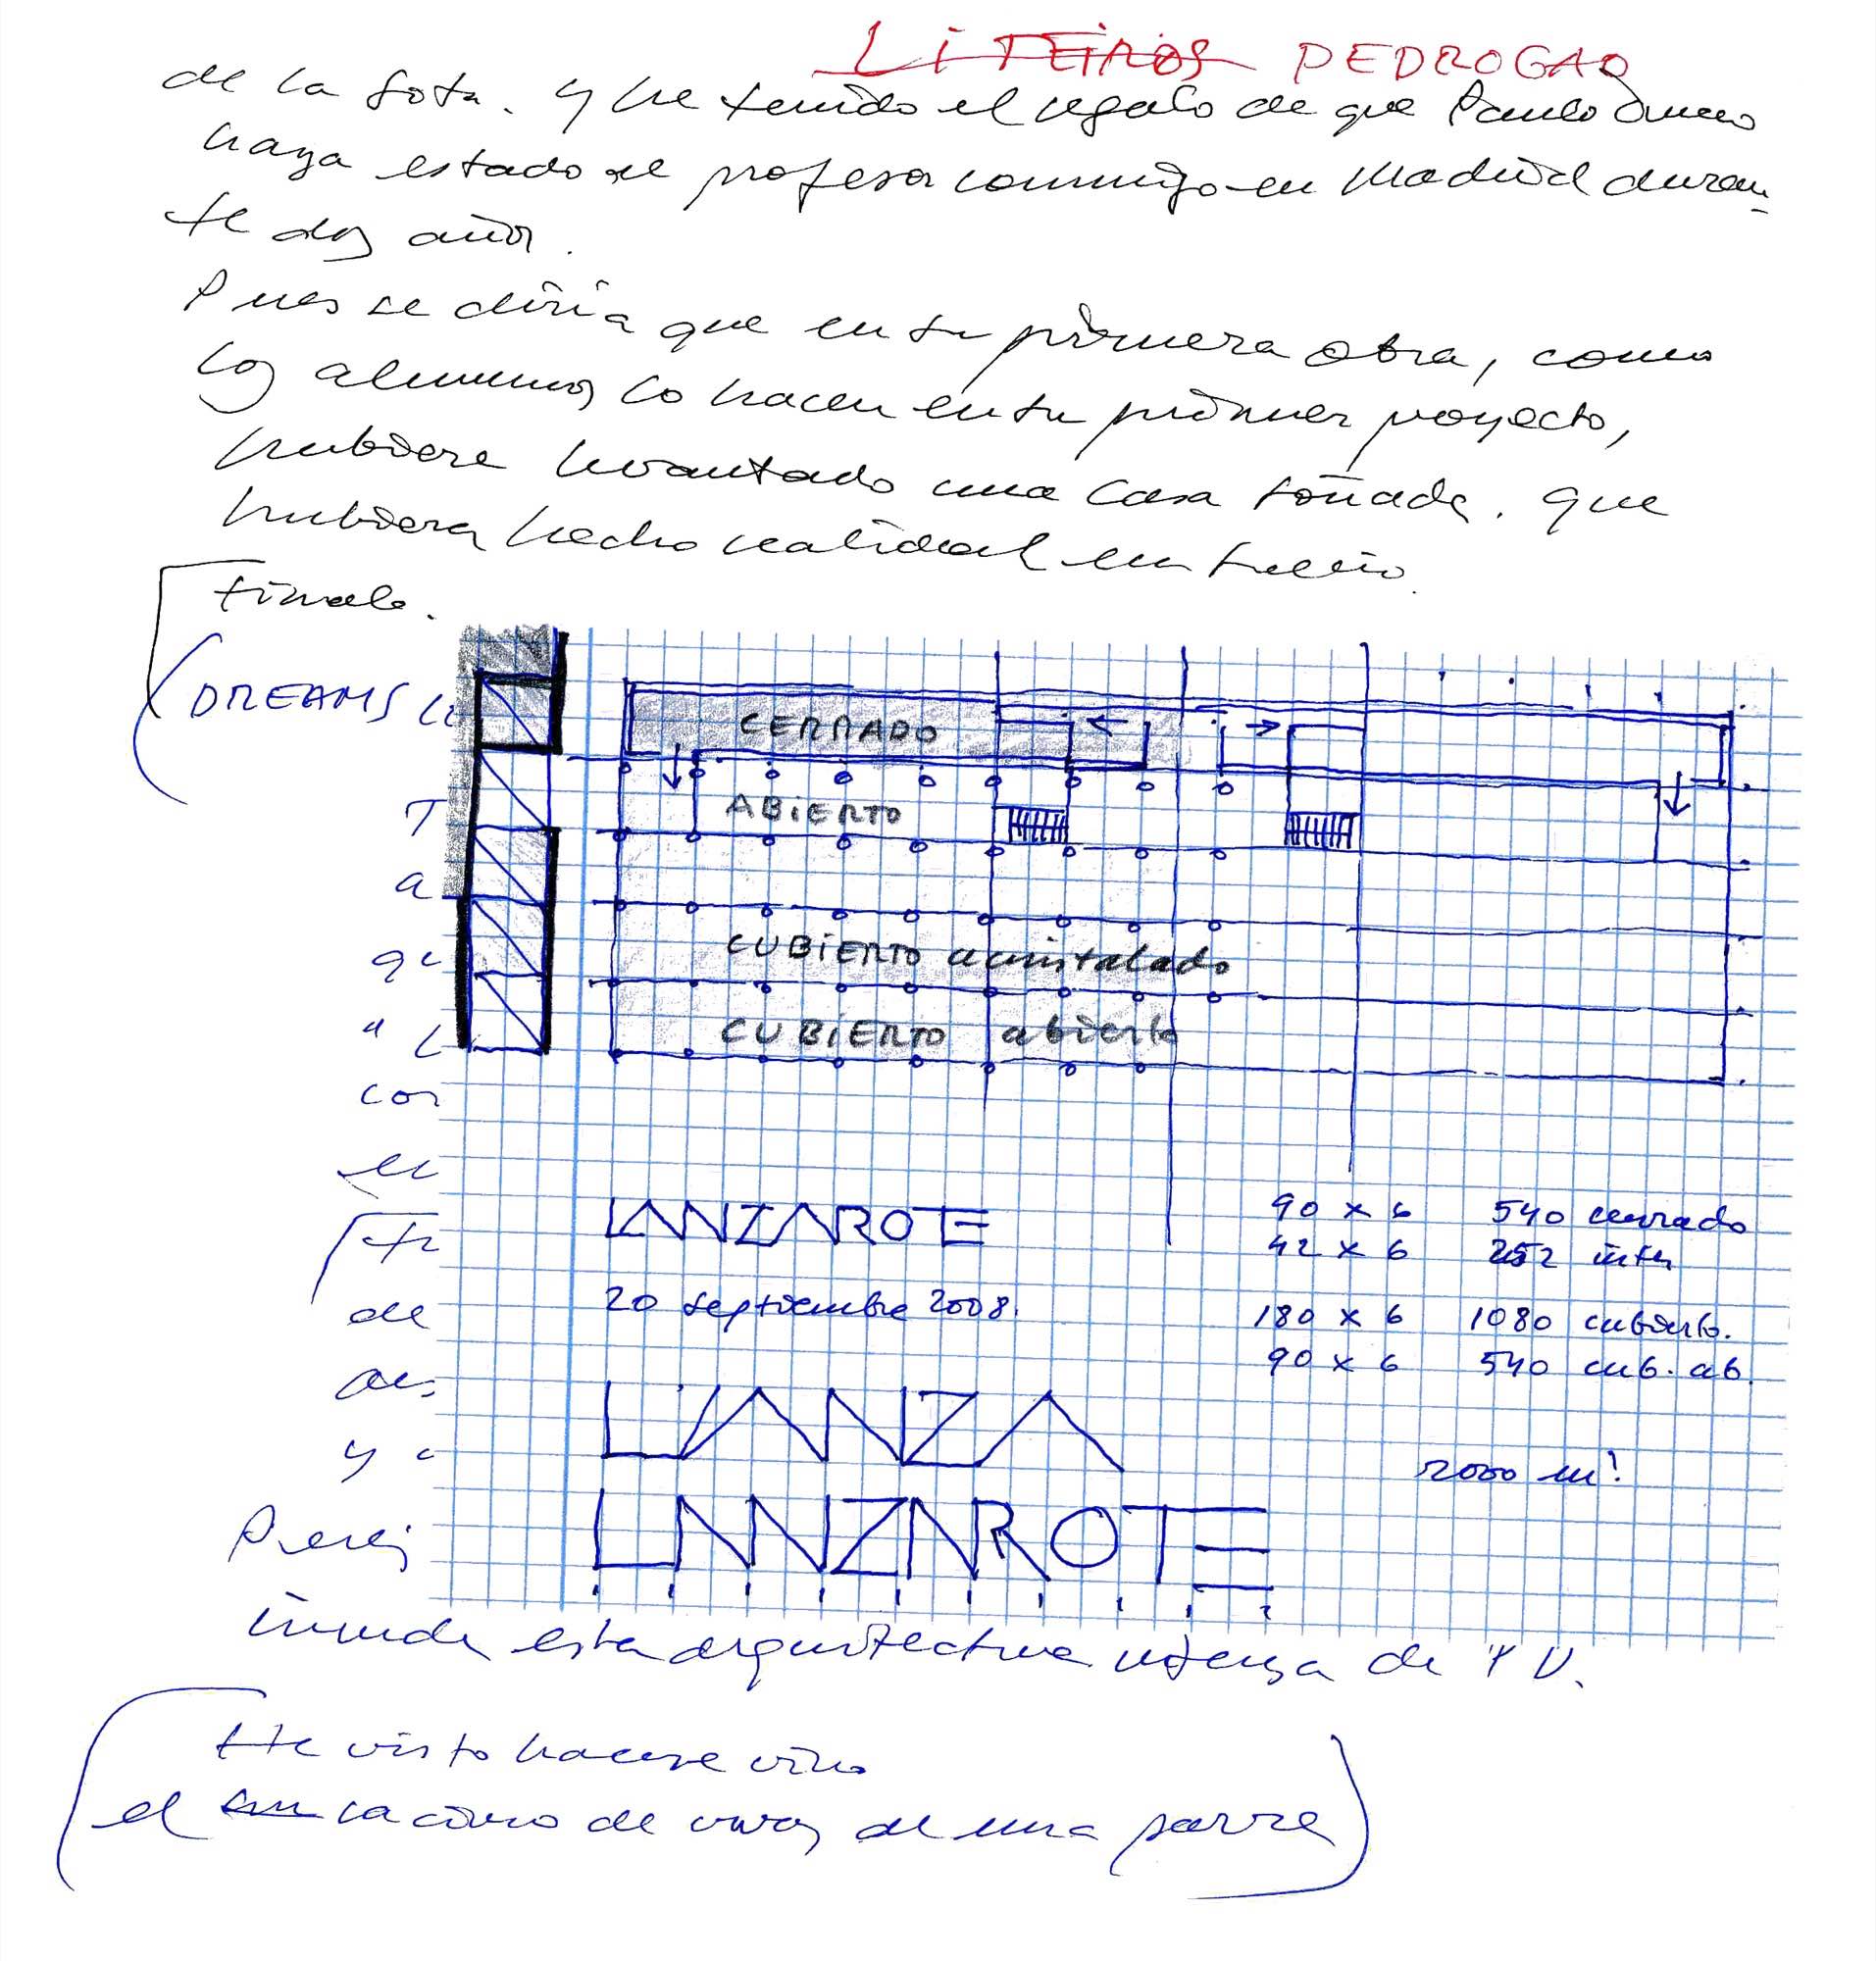 LiTEiROS PEDROGAO
de la Sota. y he tenido el regalo de que Paulo
haya estado de profesor conmigo en Madrid duran
te dos años.
Pues se diría que en su primera obra, como
los alumnos lo hacen en su primer proyecto,
hubiere levantado una casa soñada. que
hubiera hecho realidad un sueño.
Finale.
DREAMS
CERRADO
T
ABiERTO
a
CUBiERTO acristalado
CUBiERTO abierto
con
LANZAROTE
90 x 6 540 cerrado
42 x 6 252 inter
20 septiembre 2008.
de
180 x 6 1080 cubierto.
90 x 6 540 cub. ab.
L'ANZA
y
2000 m²
LANZAROTE
inunda esta arquitectura intensa de P D.
He visto hacerse vino
el la de uvas de una parra